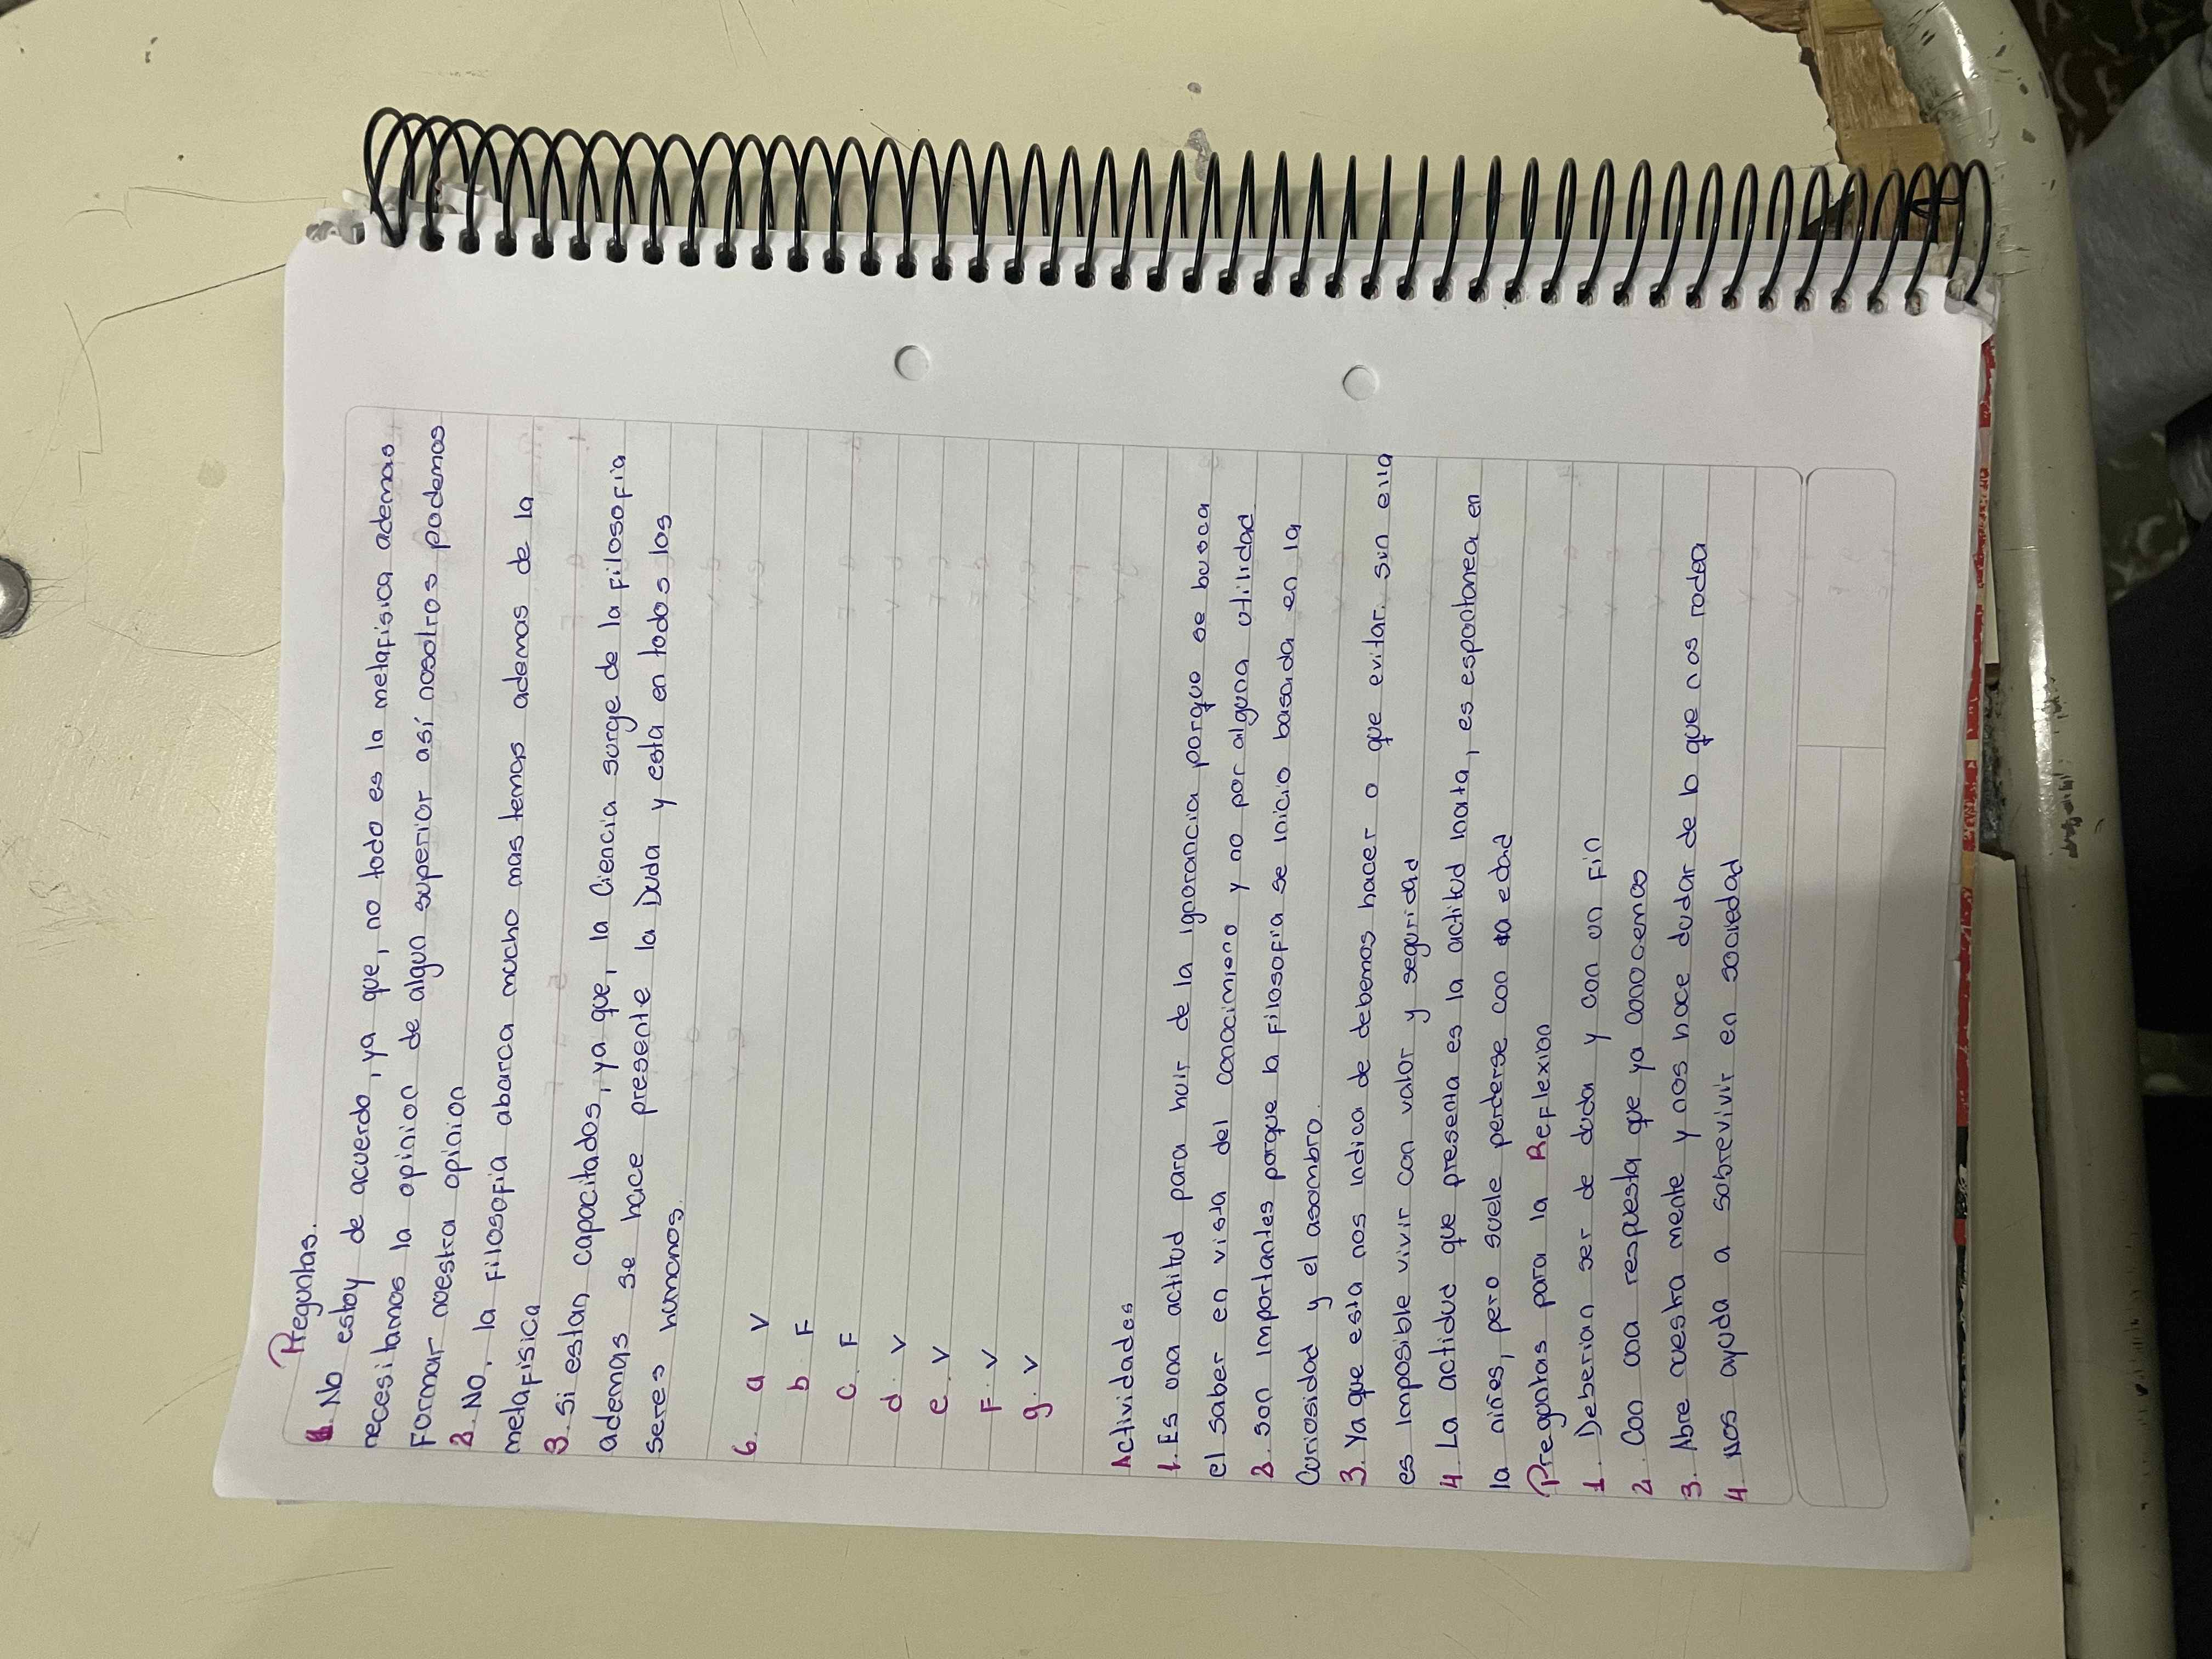 Preguntas.
1. No estoy de acuerdo, ya que, no todo es la metafisica ademas
necesitamos la opinion de algun superior así nosotros podemos
Formar nuestra opinion
2. No, la Filosofia abarca mucho mas temas ademas de la
metafisica
3. Si estan capacitados, ya que, la Ciencia surge de la Filosofia
ademas se hace presente la Duda y esta en todos los
seres humanos.
6. a V
b. F
c. F
d. V
e. V
F. V
g. V
Actividades
1. Es una actitud para huir de la ignorancia porque se busca
el saber en vista del conocimieno y no por alguna utilidad
2. Son importantes porque la Filosofia se inicio basada en la
Curiosidad y el asombro.
3. Ya que esta nos indica de debemos hacer o que evitar. sin ella
es imposible vivir con valor y seguridad
4 La actidud que presenta es la actitud inata, es espontanea en
la niñes, pero suele perderse con la edad
Preguntas para la Reflexion
1. Deberian ser de duda y con un Fin
2. Con una respuesta que ya conocemos
3. Abre nuestra mente y nos hace dudar de lo que nos rodea
4 Nos ayuda a sobrevivir en sociedad